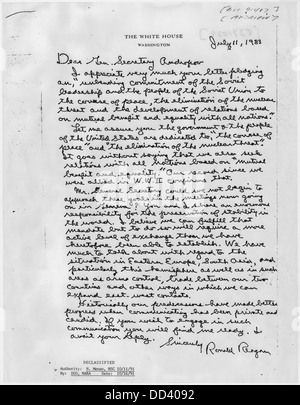 THE WHITE HOUSE
WASHINGTON
July 11, 1983
Dear Gen. Secretary Andropov
I appreciate very much your letter pledging
an "unbending commitment of the Soviet
leadership and the people of the Soviet Union to
the course of peace, the elimination of the nuclear
threat and the development of relations based
on mutual benefit and equality with all nations."
Let me assure you the government & the people
of the United States are dedicated to, "the course of
peace" and "the elimination of the nuclear threat."
It goes without saying that we also seek
relations with all nations based on "mutual
benefit and equality." Our record since we
were allied in W.W. II confirms that.
Mr. General Secretary could we not begin to
approach these goals in the meetings now going
on in Geneva? You and I share an enormous
responsibility for the preservation of stability in
the world. I believe we can fulfill that
mandate but to do so will require a more
active level of exchange than we have
heretofore been able to establish. We have
much to talk about with regard to the
situation in Eastern Europe, South Asia, and
particularly this hemisphere as well as in such
areas as arms control, trade between our two
countries and other ways in which we can
expand east-west contacts.
Historically our predecessors have made better
progress when communicating has been private and
candid. If you wish to engage in such
communication you will find me ready. I
await your reply.
Sincerely
Ronald Reagan
DECLASSIFIED
Authority:
By: NARA
alamy
DD4092